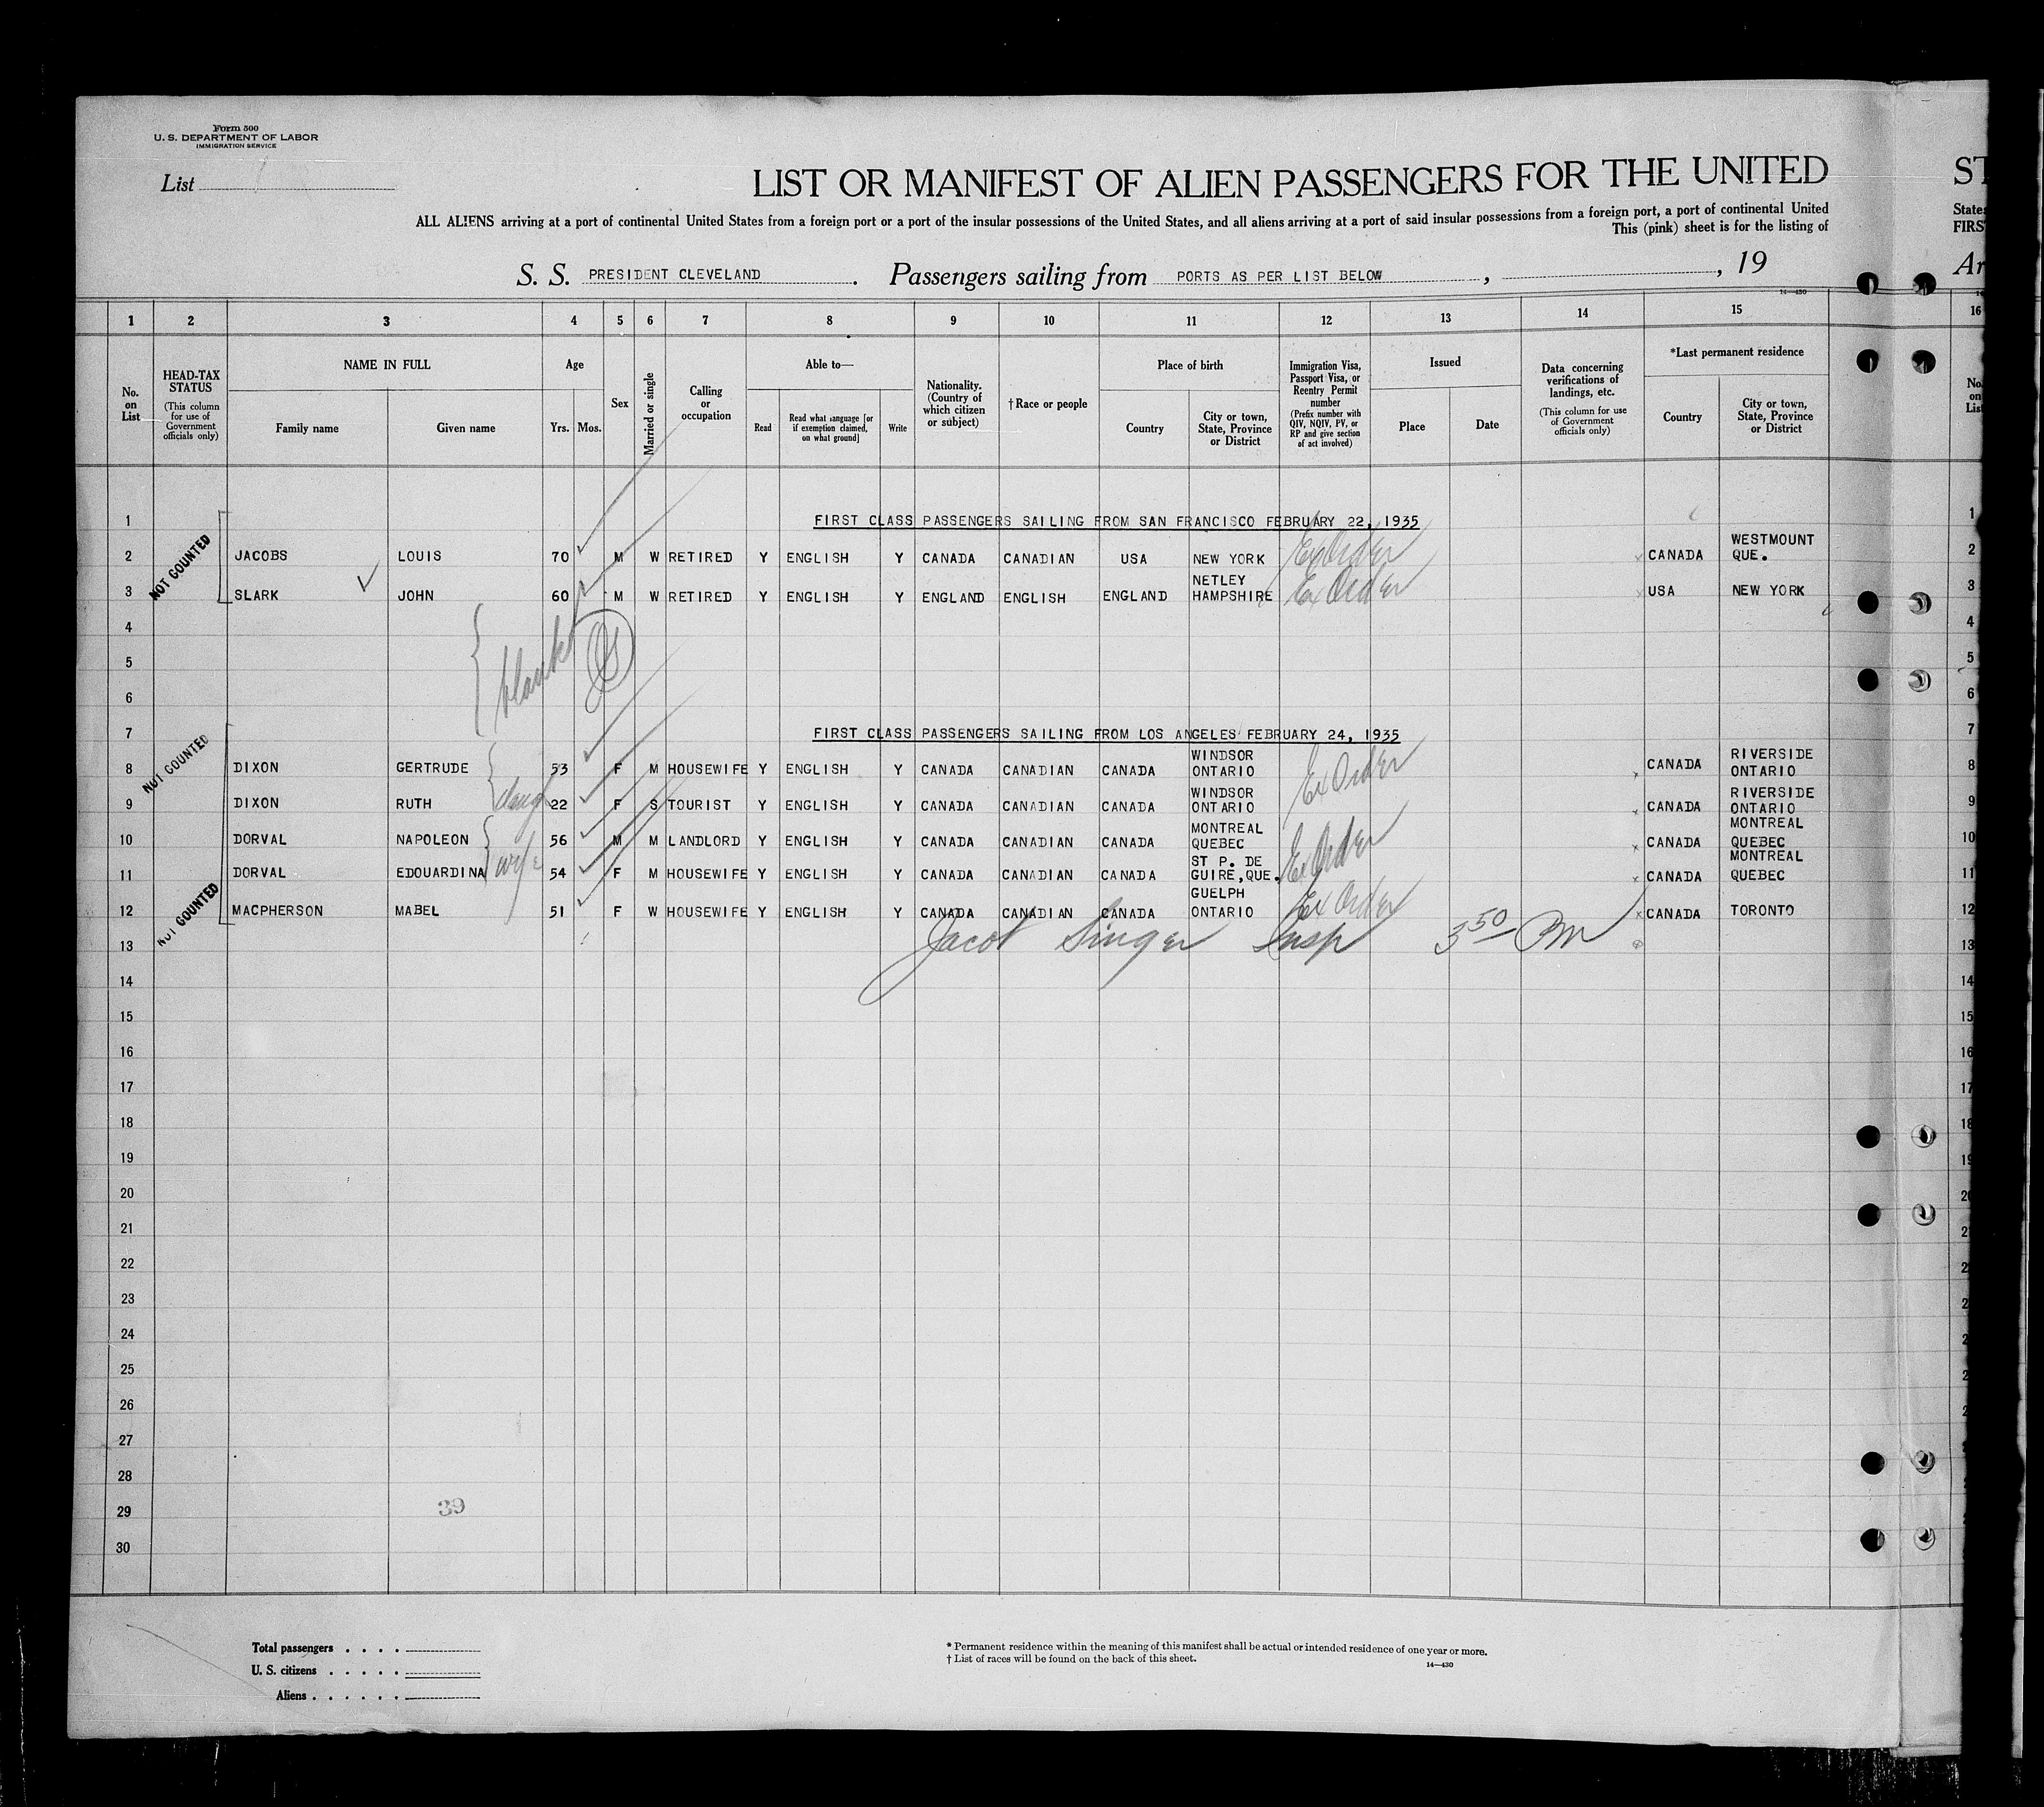 Form 500
U. S. DEPARTMENT OF LABOR
IMMIGRATION SERVICE
List 1
LIST OR MANIFEST OF ALIEN PASSENGERS FOR THE UNITED ST
ALL ALIENS arriving at a port of continental United States from a foreign port or a port of the insular possessions of the United States, and all aliens arriving at a port of said insular possessions from a foreign port, a port of continental United States
This (pink) sheet is for the listing of FIRS
S. S. PRESIDENT CLEVELAND. Passengers sailing from PORTS AS PER LIST BELOW, , 19 Ar
14—430
1 2 3 4 5 6 7 8 9 10 11 12 13 14 15 16
No. on List
HEAD-TAX STATUS (This column for use of Government officials only)
NAME IN FULL
Family name
Given name
Age
Yrs. Mos.
Sex
Married or single
Calling or occupation
Able to—
Read
Read what language [or if exemption claimed, on what ground]
Write
Nationality. (Country of which citizen or subject)
†Race or people
Place of birth
Country
City or town, State, Province or District
Immigration Visa, Passport Visa, or Reentry Permit number (Prefix number with QIV, NQIV, PV, or RP and give section of act involved)
Issued
Place
Date
Data concerning verifications of landings, etc. (This column for use of Government officials only)
*Last permanent residence
Country
City or town, State, Province or District
No. on List
1 FIRST CLASS PASSENGERS SAILING FROM SAN FRANCISCO FEBRUARY 22, 1935 1
NOT COUNTED
2 JACOBS LOUIS 70 M W RETIRED Y ENGLISH Y CANADA CANADIAN USA NEW YORK Ex Order CANADA WESTMOUNT QUE. 2
3 SLARK JOHN 60 M W RETIRED Y ENGLISH Y ENGLAND ENGLISH ENGLAND NETLEY HAMPSHIRE Ex Order USA NEW YORK 3
4 4
5 blank JS 5
6 6
7 FIRST CLASS PASSENGERS SAILING FROM LOS ANGELES FEBRUARY 24, 1935 7
NOT COUNTED
8 DIXON GERTRUDE 53 F M HOUSEWIFE Y ENGLISH Y CANADA CANADIAN CANADA WINDSOR ONTARIO Ex Order CANADA RIVERSIDE ONTARIO 8
9 DIXON RUTH daug 22 F S TOURIST Y ENGLISH Y CANADA CANADIAN CANADA WINDSOR ONTARIO CANADA RIVERSIDE ONTARIO 9
10 DORVAL NAPOLEON 56 M M LANDLORD Y ENGLISH Y CANADA CANADIAN CANADA MONTREAL QUEBEC Ex Order CANADA MONTREAL QUEBEC 10
11 DORVAL EDOUARDINA wife 54 F M HOUSEWIFE Y ENGLISH Y CANADA CANADIAN CANADA ST P. DE GUIRE,QUE. CANADA MONTREAL QUEBEC 11
NOT COUNTED
12 MACPHERSON MABEL 51 F W HOUSEWIFE Y ENGLISH Y CANADA CANADIAN CANADA GUELPH ONTARIO Ex Order CANADA TORONTO 12
13 Jacob Singer Insp 3 50 Pm 13
14 14
15 15
16 16
17 17
18 18
19 19
20 20
21
22
23
24
25
26
27
28
29
39
30
Total passengers . . . .
U. S. citizens . . . . .
Aliens . . . . . .
* Permanent residence within the meaning of this manifest shall be actual or intended residence of one year or more.
† List of races will be found on the back of this sheet.
14—430